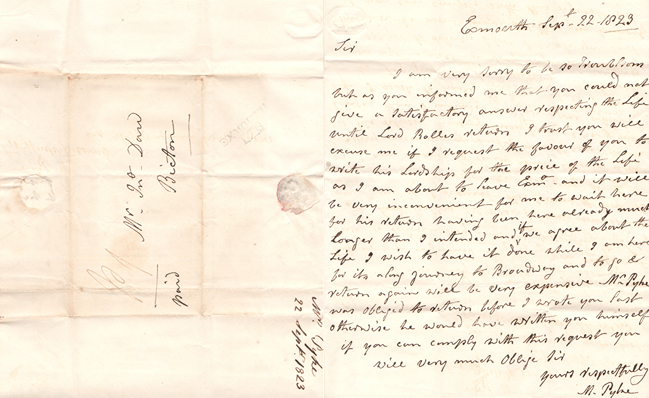 Exmouth Sept. 22 - 1823
Sir
I am very sorry to be so troublsom
but as you informed me that you could not
give a satisfactory answer respecting the Life
until Lord Rolles return I trust you will
excuse me if I request the favour of you to
write his Lordship for the price of the Life
as I am about to leave Exmo - and it will
be very inconvenient for me to wait here
for his return having been here already much
Longer than I intended and if we agree about the
Life I wish to have it done while I am here
for its along journey to Broadway and to go &
return again will be very expensive Mr Pyke
was obliged to return before I wrote you last
otherwise he would have written you himself
if you can comply with this request you
will very much Oblige Sir
yours respectfully
M. Pyke
Mr. Jno. Daw
Bicton
paid
Mrs Pyke
22 Sept. 1823